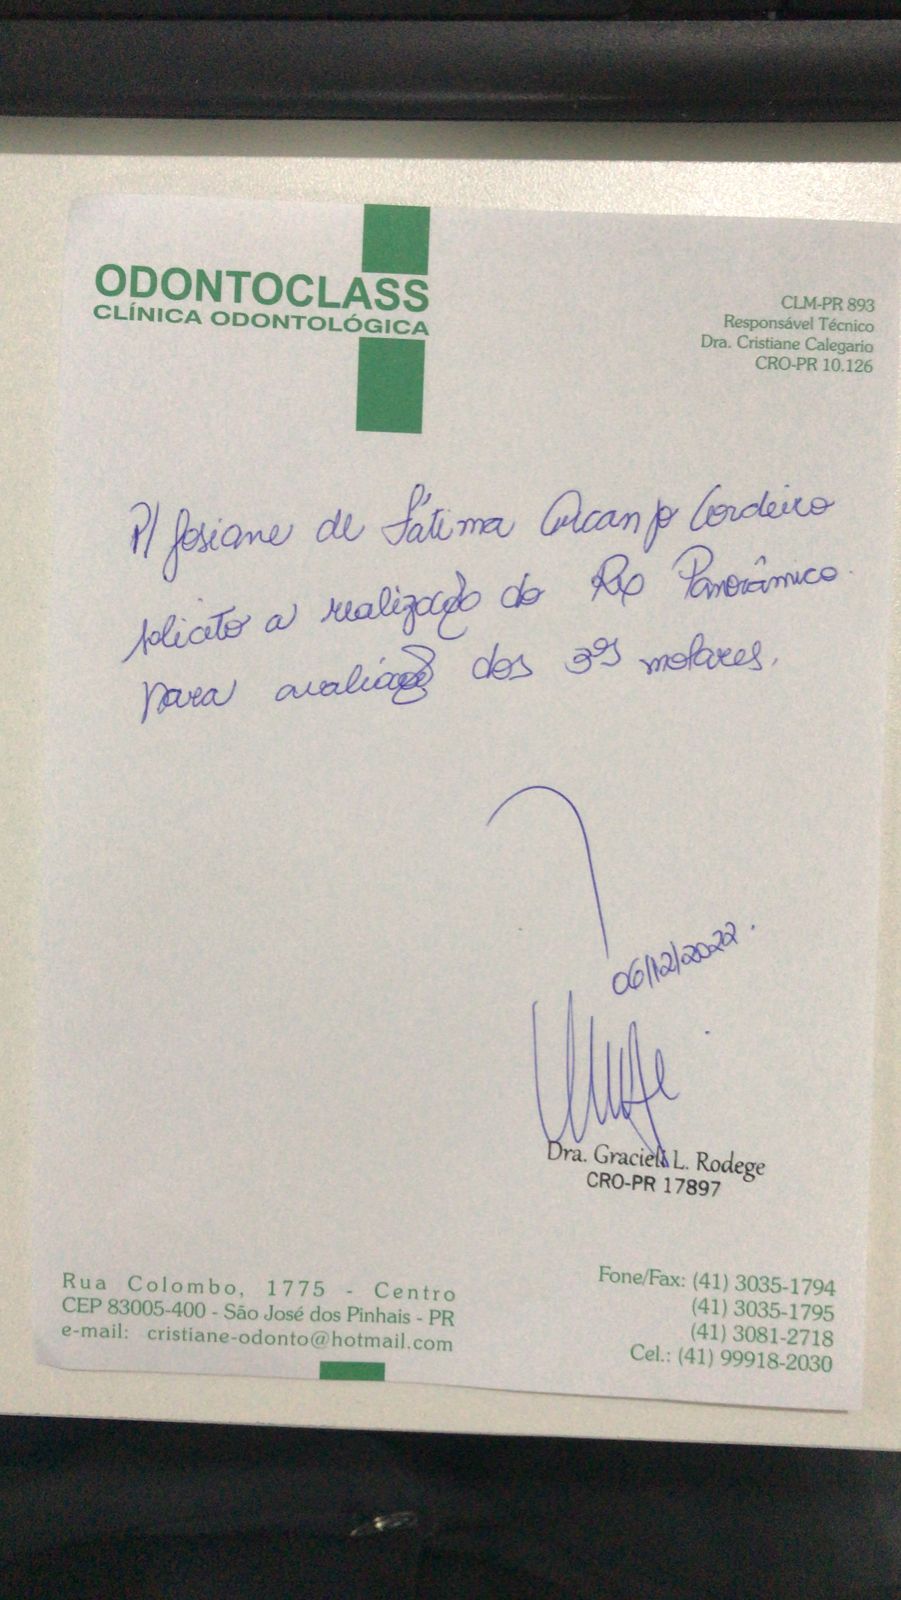 ODONTOCLASS
CLÍNICA ODONTOLÓGICA
CLM-PR 893
Responsável Técnico
Dra. Cristiane Calegario
CRO-PR 10.126
P/ Josiane de Fátima Arcanjo Cordeiro
solicito a realização do Rx Panorâmico
para avaliação dos 3ºs molares.
06/12/2022.
Dra. Gracieli L. Rodege
CRO-PR 17897
Rua Colombo, 1775 - Centro
CEP 83005-400 - São José dos Pinhais - PR
e-mail: cristiane-odonto@hotmail.com
Fone/Fax: (41) 3035-1794
(41) 3035-1795
(41) 3081-2718
Cel.: (41) 99918-2030